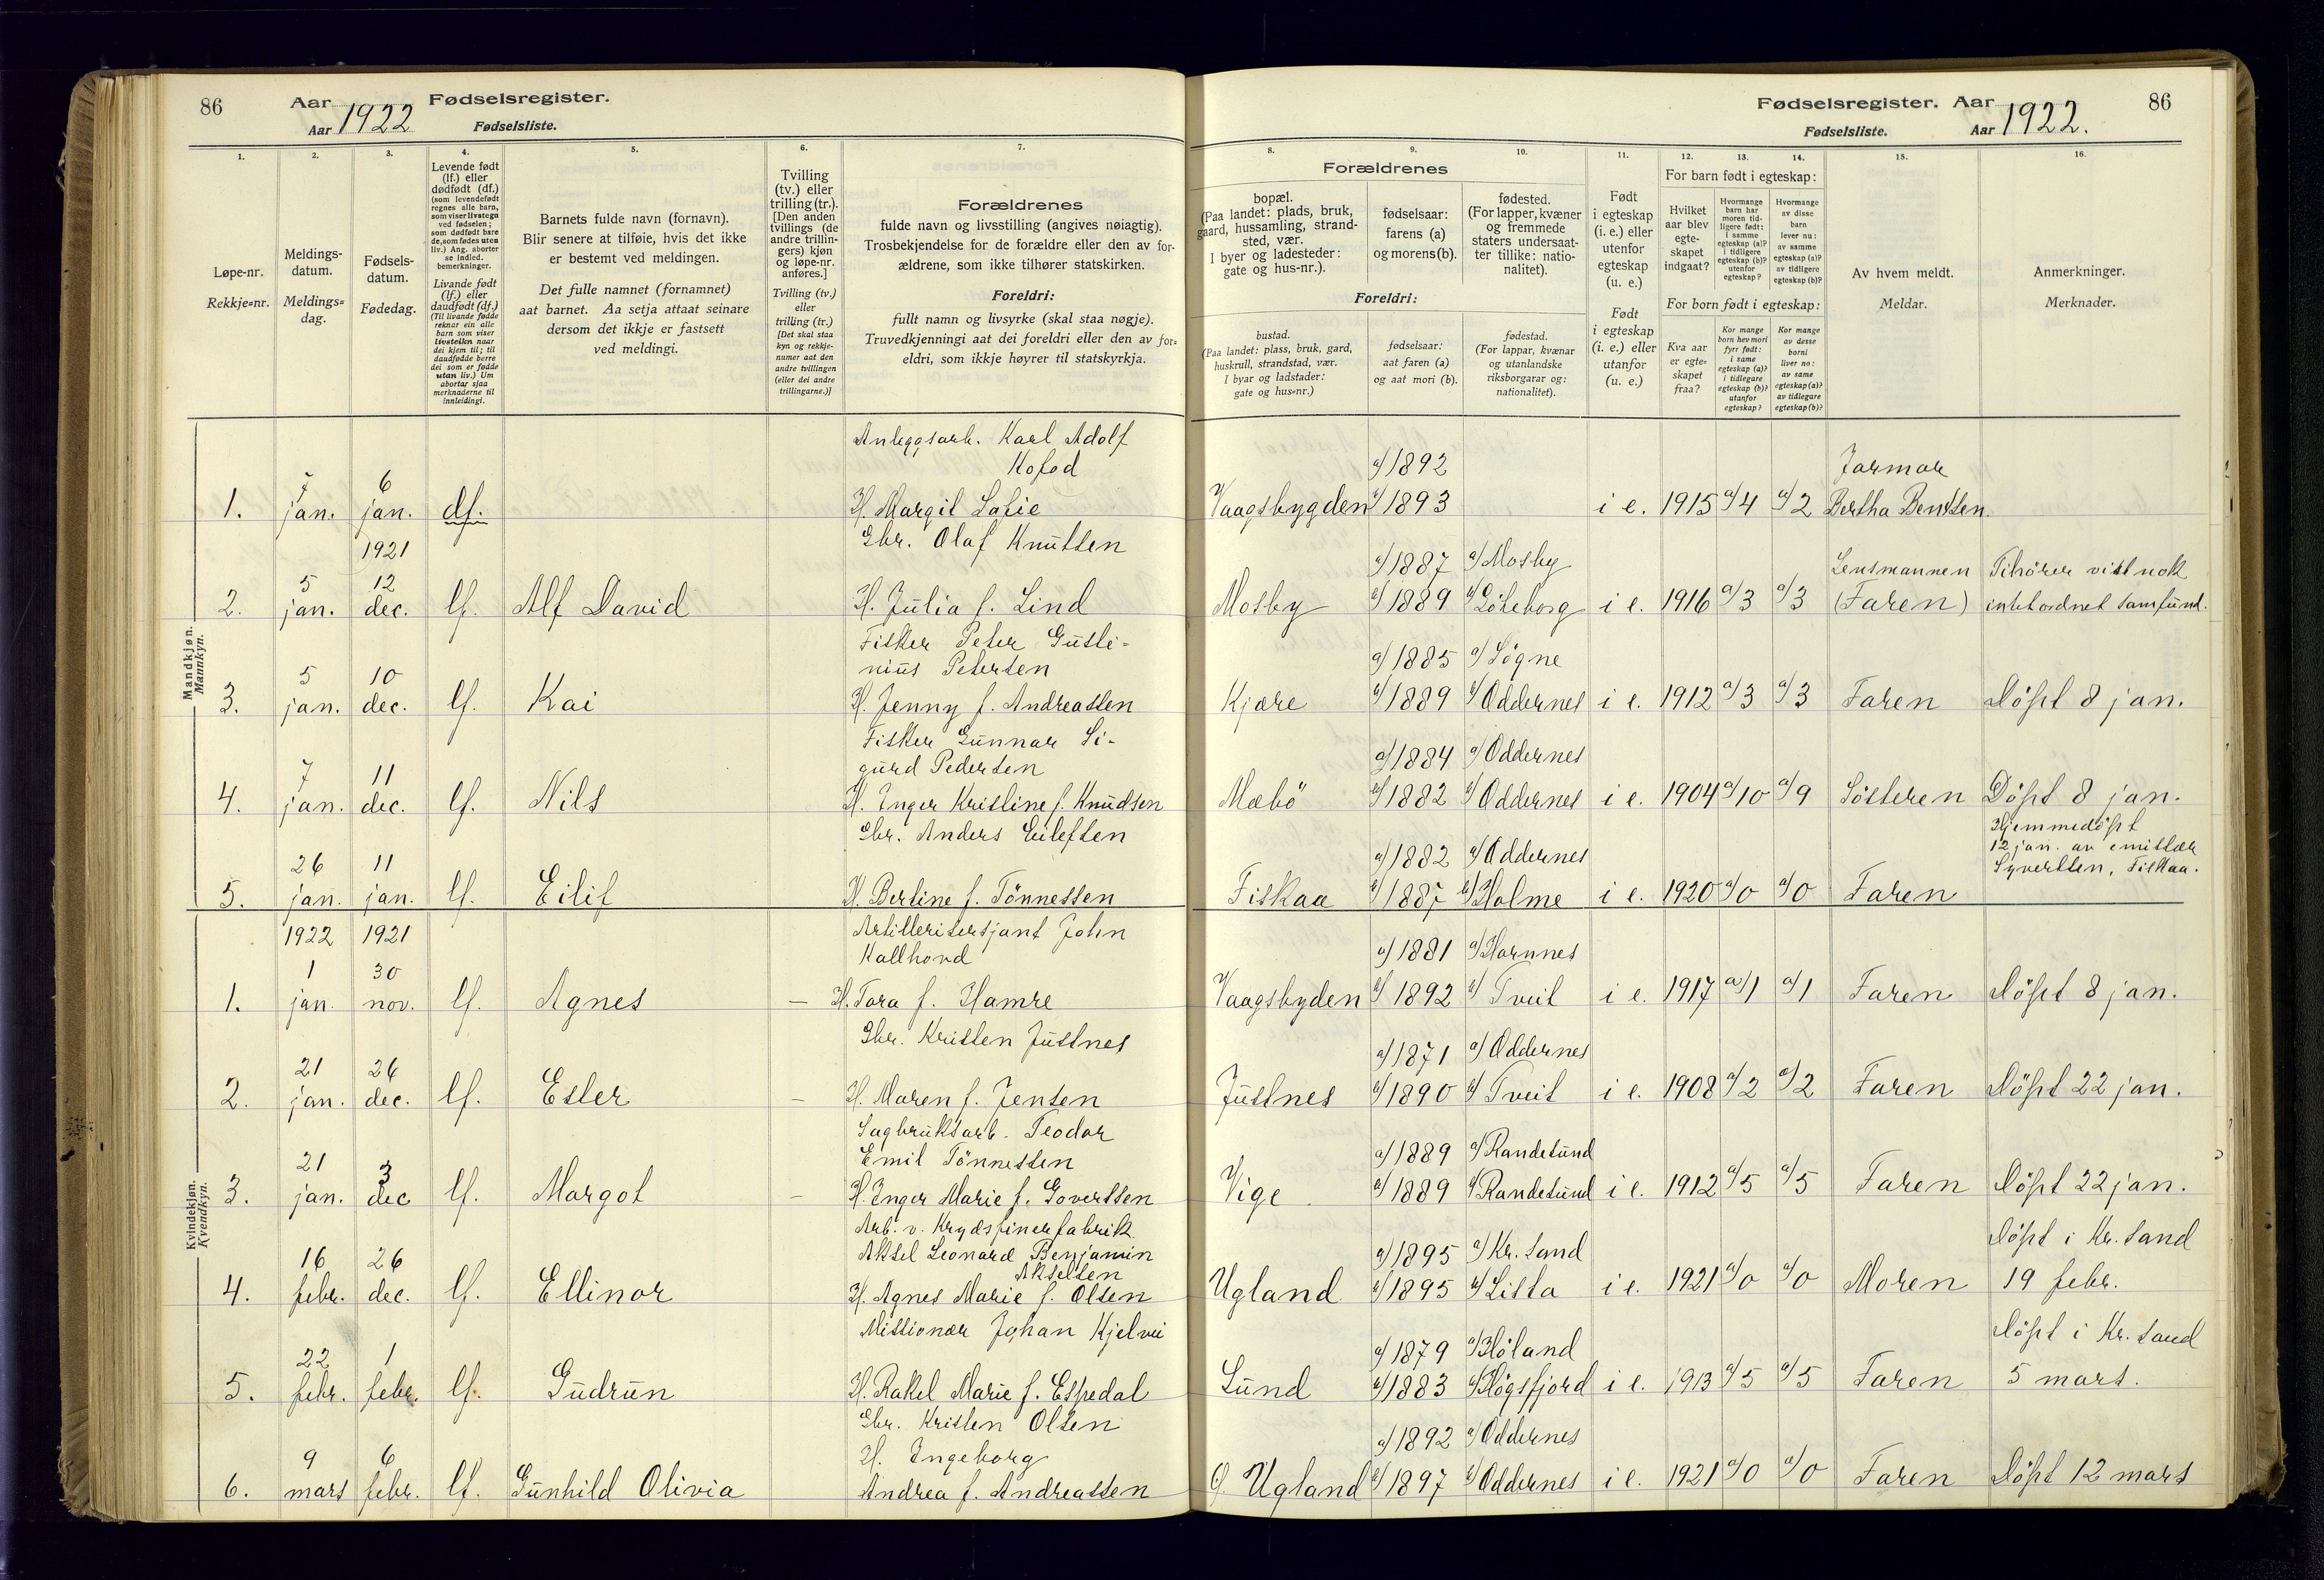 86
Aar
Aar 1922
Fødselsregister.
Fødselsliste.
1.
Løpe-nr.
Rekkje=nr.
2.
Meldings-
datum.
Meldings=
dag.
3.
Fødsels-
datum.
Fødedag.
4.
Levende født
(lf.) eller
dødfødt (df.)
(som levendefødt
regnes alle barn,
som viser livstegn
ved fødselen;
som dødfødt bare
de, som fødes uten
liv.) Ang. aborter
se indled.
bemerkninger.
Livande født
(lf.) eller
daudfødt (df.)
(Til livande fødde
reknar ein alle
barn som viser
livsteikn naar
dei kjem til; til
daudfødde berre
dei som er fødde
utan liv.) Um
abortar sjaa
merknaderne til
innleidingi.
5.
Barnets fulde navn (fornavn).
Blir senere at tilføie, hvis det ikke
er bestemt ved meldingen.
Det fulle namnet (fornamnet)
aat barnet. Aa setja attaat seinare
dersom det ikkje er fastsett
ved meldingi.
6.
Tvilling
(tv.) eller
trilling (tr.).
[Den anden
tvillings (de
andre trillin-
gers) kjøn
og løpe-nr.
anføres.]
Tvilling (tv.)
eller
trilling (tr.)
[Det skal staa
kyn og rekkje-
numer aat den
andre tvillingen
(eller dei andre
trillingarne.)]
7.
Forældrenes
fulde navn og livsstilling (angives nøiagtig).
Trosbekjendelse for de forældre eller den av for-
ældrene, som ikke tilhører statskirken.
Foreldri:
fullt namn og livsyrke (skal staa nøgje).
Truvedkjenningi aat dei foreldri eller den av for=
eldri, som ikkje høyrer til statskyrkja.
Mandkjøn.
Mannkyn.
Anleggsarb. Karl Adolf
Kofod
7 6
1. jan. jan. df. H. Margit Sofie
1921
Gbr. Olaf Knutsen
5 12
2. jan. dec. lf. Alf David H. Julia f. Lind
Fisker Peter Gusti=
nius Petersen
5 10
3. jan. dec. lf. Kai H. Jenny f. Andreassen
Fisker Gunnar Si-
gurd Pedersen
7 11
4. jan. dec. lf. Nils H. Inger Kristine f. Knudsen
Gbr. Anders Eilefsen
26 11
5. jan. jan. lf. Eilif H. Bertine f. Tönnessen
Kvindekjøn.
Kvendkyn.
1922 1921
Artillerisersjant John
Kallhovd
1 30
1. jan. nov. lf. Agnes — H. Tora f. Hamre
Gbr. Kristen Justnes
21 26
2. jan. dec. lf. Ester — H. Maren f. Jensen
Sagbruksarb. Teodor
Emil Tönnessen
21 3
3. jan. dec lf. Margot — H. Inger Marie f. Govertsen
Arb. v. Krydsfinerfabrik
Aksel Leonard Benjamin
Akselsen
16 26
4. febr. dec. lf. Ellinor H. Agnes Marie f. Olsen
Missionær Johan Kjelvei
22 1
5. febr. febr. lf. Gudrun H. Rakel Marie f. Espedal
Gbr. Kristen Olsen
H. Ingeborg
9 6
6. mars febr. lf. Gunhild Olivia Andrea f. Andreassen
Fødselsregister. Aar
Fødselsliste. Aar 1922.
86
8.
9.
10.
Forældrenes
bopæl.
(Paa landet: plads, bruk,
gaard, hussamling, strand-
sted, vær.
I byer og ladesteder:
gate og hus-nr.).
fødselsaar:
farens (a)
og morens (b).
fødested.
(For lapper, kvæner
og fremmede
staters undersaat-
ter tillike: natio-
nalitet).
Foreldri:
bustad.
(Paa landet: plass, bruk, gard,
huskrull, strandstad, vær.
I byar og ladstader:
gate og hus=nr.)
fødselsaar:
aat faren (a)
og aat mori (b).
fødestad.
(For lappar, kvænar
og utanlandske
riksborgarar og:
nationalitet).
11.
Født
i egteskap
(i. e.) eller
utenfor
egteskap
(u. e.)
Født
i egteskap
(i. e.) eller
utanfor
(u. e.)
12.
13.
14.
For barn født i egteskap:
Hvilket
aar blev
egte-
skapet
indgaat?
Hvormange
barn har
moren tid-
ligere født:
i samme
egteskap (a)?
i tidligere
egteskap (b)?
utenfor
egteskap?
Hvormange
av disse
barn
lever nu:
av samme
egteskap (a)?
av tidligere
egteskap (b)?
For born født i egteskap:
Kva aar
er egte-
skapet
fraa?
Kor mange
born hev mori
fyrr født:
i same
egteskap (a)?
i tidlegare
egteskap (b)?
utanfor
egteskap?
Kor mange
av desse
borni
liver no:
av same
egteskap (a)?
av tidlegare
egteskap (b)?
15.
Av hvem meldt.
Meldar.
16.
Anmerkninger.
Merknader.
a) 1892 Jormor
Vaagsbygden b) 1893 i e. 1915 a) 4 a) 2 Bertha Bentsen.
a) 1887 a) Mosby Lensmannen Tihörer vistnok
Mosby b) 1889 b) Göteborg i e. 1916 a) 3 a) 3 (Faren) intet ordnet samfund.
a) 1885 a) Sögne
Kjære b) 1889 b) Oddernes i e. 1912 a) 3 a) 3 Faren Döpt 8 jan.
a) 1884 a) Oddernes
Mæbö b) 1882 b) Oddernes i e. 1904 a) 10 a) 9 Sösteren Döpt 8 jan.
Hjemmedöpt
12 jan. av emissær
Syvertsen, Fiskaa.
a) 1882 a) Oddernes
Fiskaa b) 1887 b) Holme i e. 1920 a) 0 a) 0 Faren
a) 1881 a) Hornnes
Vaagsbyden b) 1892 b) Tveit i e. 1917 a) 1 a) 1 Faren Döpt 8 jan.
a) 1871 a) Oddernes
Justnes b) 1890 b) Tveit i e. 1908 a) 2 a) 2 Faren Döpt 22 jan.
a) 1889 a) Randesund
Vige b) 1889 b) Randesund i e. 1912 a) 5 a) 5 Faren Döpt 22 jan.
a) 1895 a) Kr. sand Döpt i Kr. sand
Ugland b) 1895 b) Lista i e. 1921 a) 0 a) 0 Moren 19 febr.
a) 1879 a) Höland Döpt i Kr. sand
Lund b) 1883 b) Högsfjord i e. 1913 a) 5 a) 5 Faren 5 mars.
a) 1892 a) Oddernes
Ugland b) 1897 b) Oddernes i e. 1921 a) 0 a) 0 Faren Döpt 12 mars